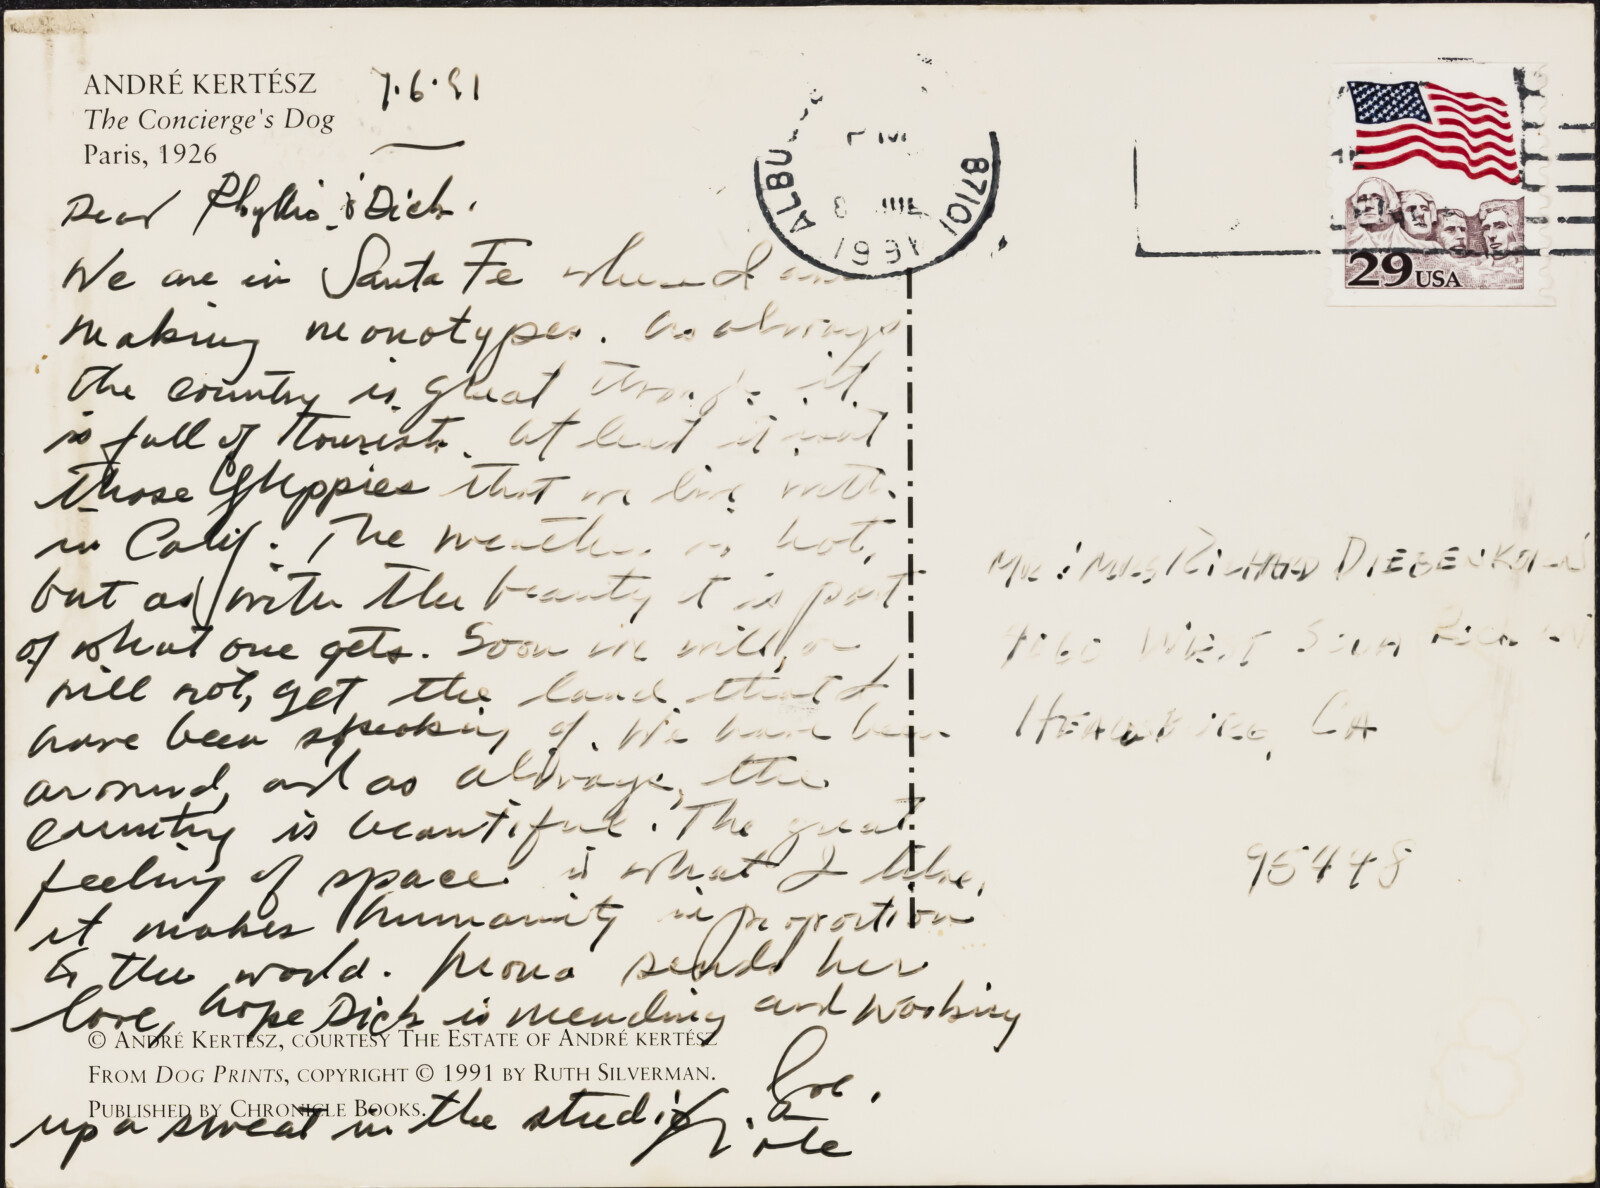 ANDRÉ KERTÉSZ
The Concierge's Dog
Paris, 1926
7.6.91
Dear Phyllis & Dick.
We are in Santa Fe where I am
making monotypes. As always
the country is great though it
is full of tourists. At least it isn't
those Yuppies that we live with
in Calif. The weather is hot,
but as with the beauty it is part
of what one gets. Soon we will, or
will not, get the land that I
have been speaking of. We have been
around, and as always, the
country is beautiful. The great
feeling of space is what I like,
it makes humanity in proportion
to the world. Mona sends her
love, hope Dick is mending and working
up a sweat in the studio.
Love.
© ANDRÉ KERTÉSZ, COURTESY THE ESTATE OF ANDRÉ KERTÉSZ
FROM DOG PRINTS, COPYRIGHT © 1991 BY RUTH SILVERMAN.
PUBLISHED BY CHRONICLE BOOKS.
ALBU
PM
8
1991
87101
29 USA
MR & MRS RICHARD DIEBENKORN
WEST
HEALDSBURG, CA
95448